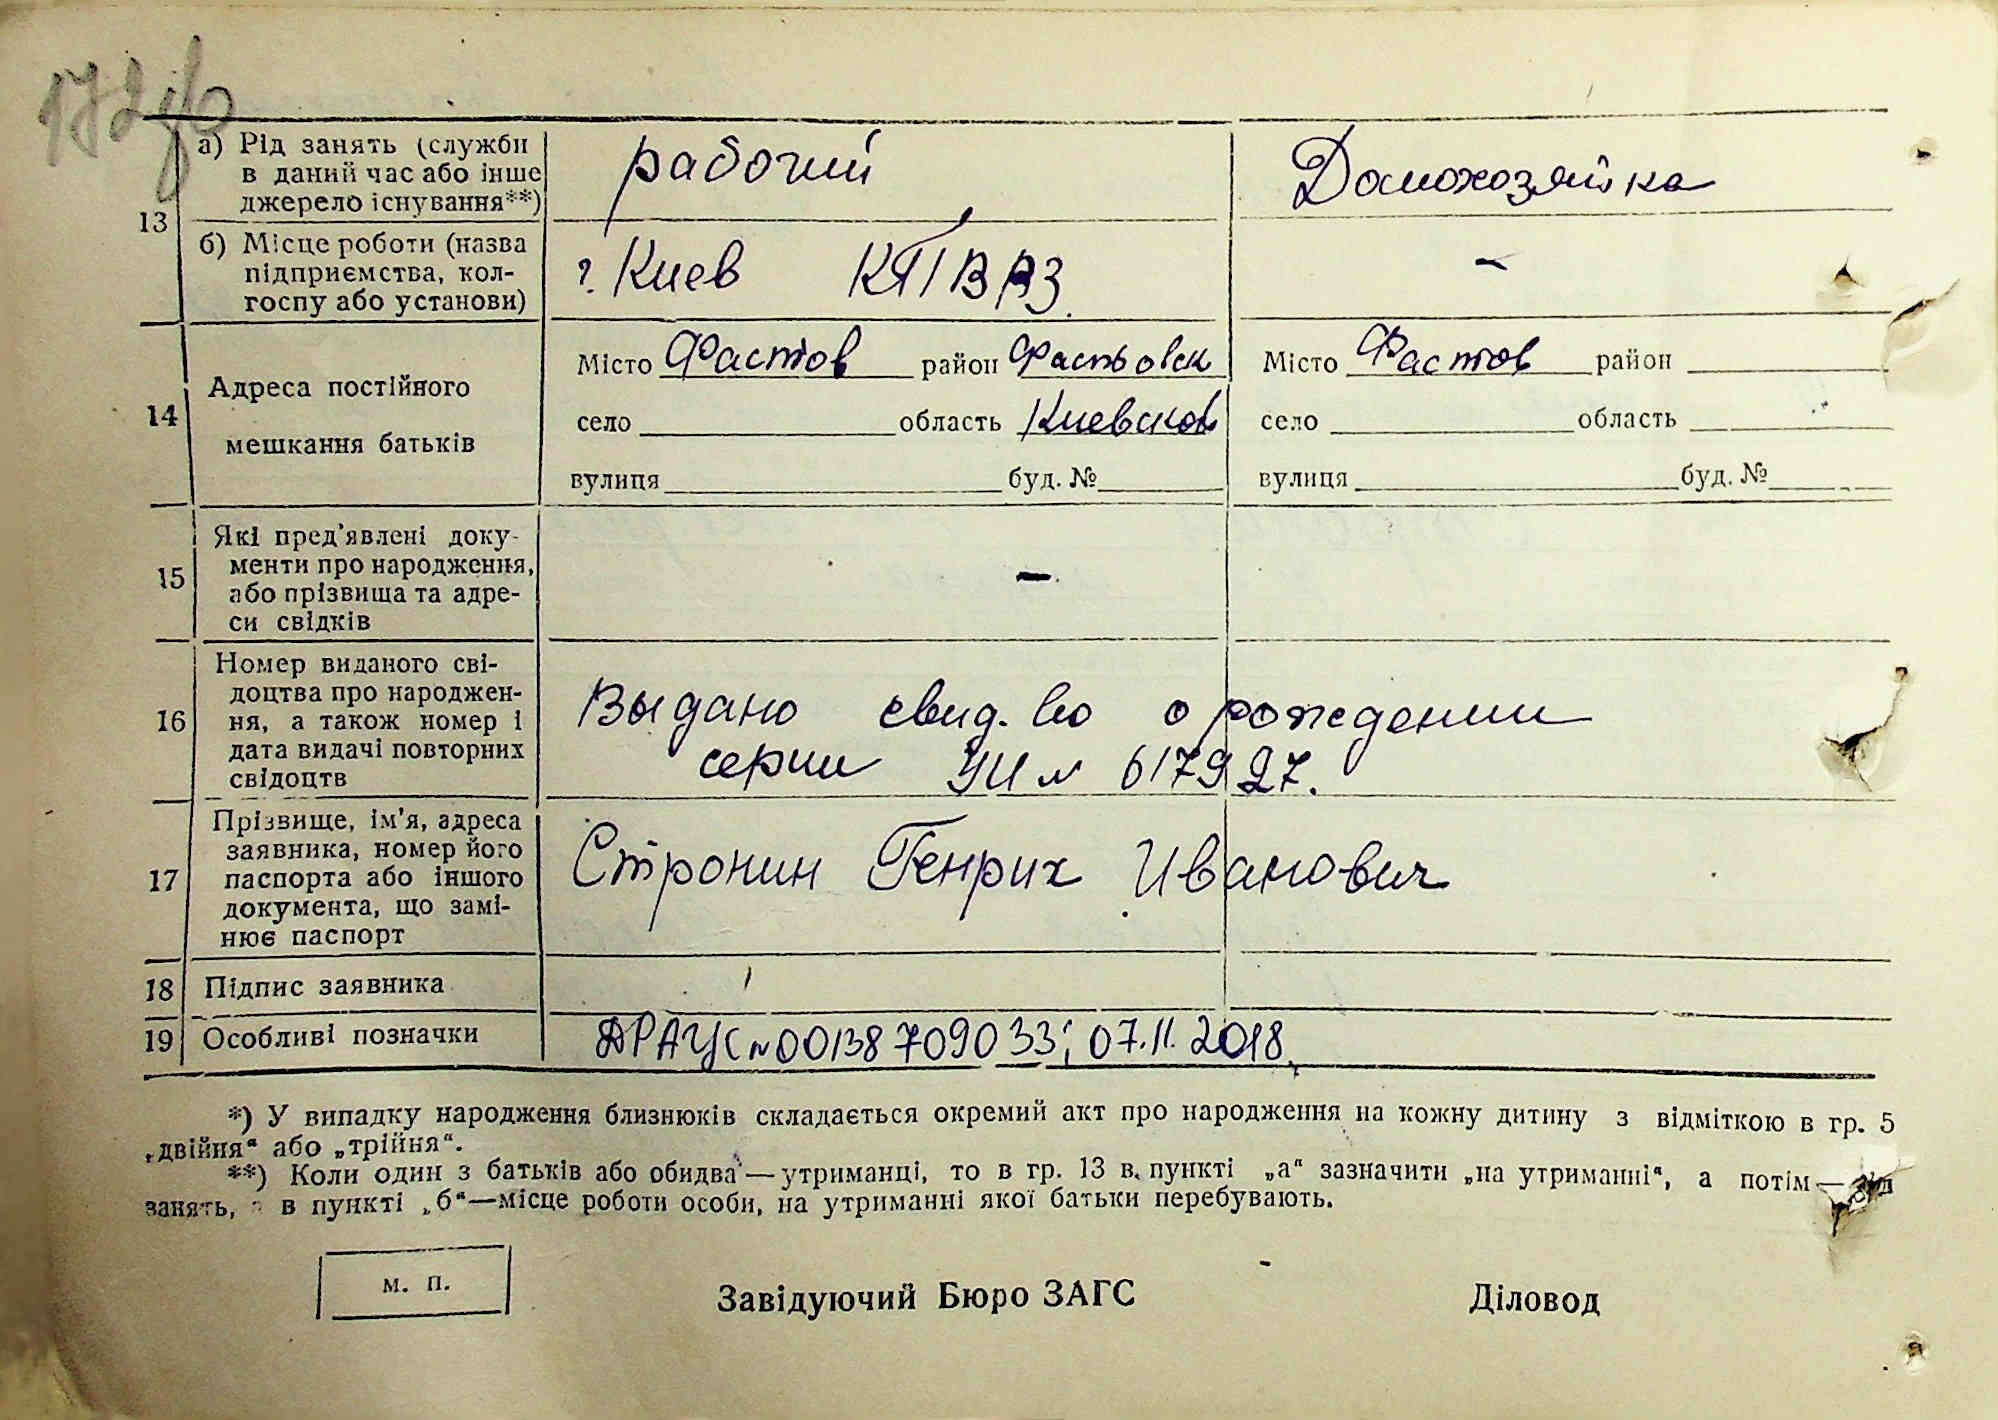 172
а) Рід занять (служби
в даний час або інше
джерело існування**)
рабочий
Домохозяйка
13
б) Місце роботи (назва
підприємства, кол-
госпу або установи)
г. Киев КПВРЗ
-
14
Адреса постійного
мешкання батьків
Місто Фастов район Фастовск
село область Киевской
вулиця буд. №
Місто Фастов район
село область
вулиця буд. №
15
Які пред'явлені доку-
менти про народження,
або прізвища та адре-
си свідків
-
16
Номер виданого сві-
доцтва про народжен-
ня, а також номер і
дата видачі повторних
свідоцтв
Выдано свид. во о рождении
серии УИ № 617927.
17
Прізвище, ім'я, адреса
заявника, номер його
паспорта або іншого
документа, що замі-
нює паспорт
Стронин Генрих Иванович
18 Підпис заявника
19 Особливі позначки
ДРАЦС № 00138709033; 07.11.2018.
*) У випадку народження близнюків складається окремий акт про народження на кожну дитину з відміткою в гр. 5
„двійня“ або „трійня“.
**) Коли один з батьків або обидва — утриманці, то в гр. 13 в пункті „а“ зазначити „на утриманні“, а потім — рід
занять, а в пункті „б“—місце роботи особи, на утриманні якої батьки перебувають.
м. п.
Завідуючий Бюро ЗАГС
Діловод